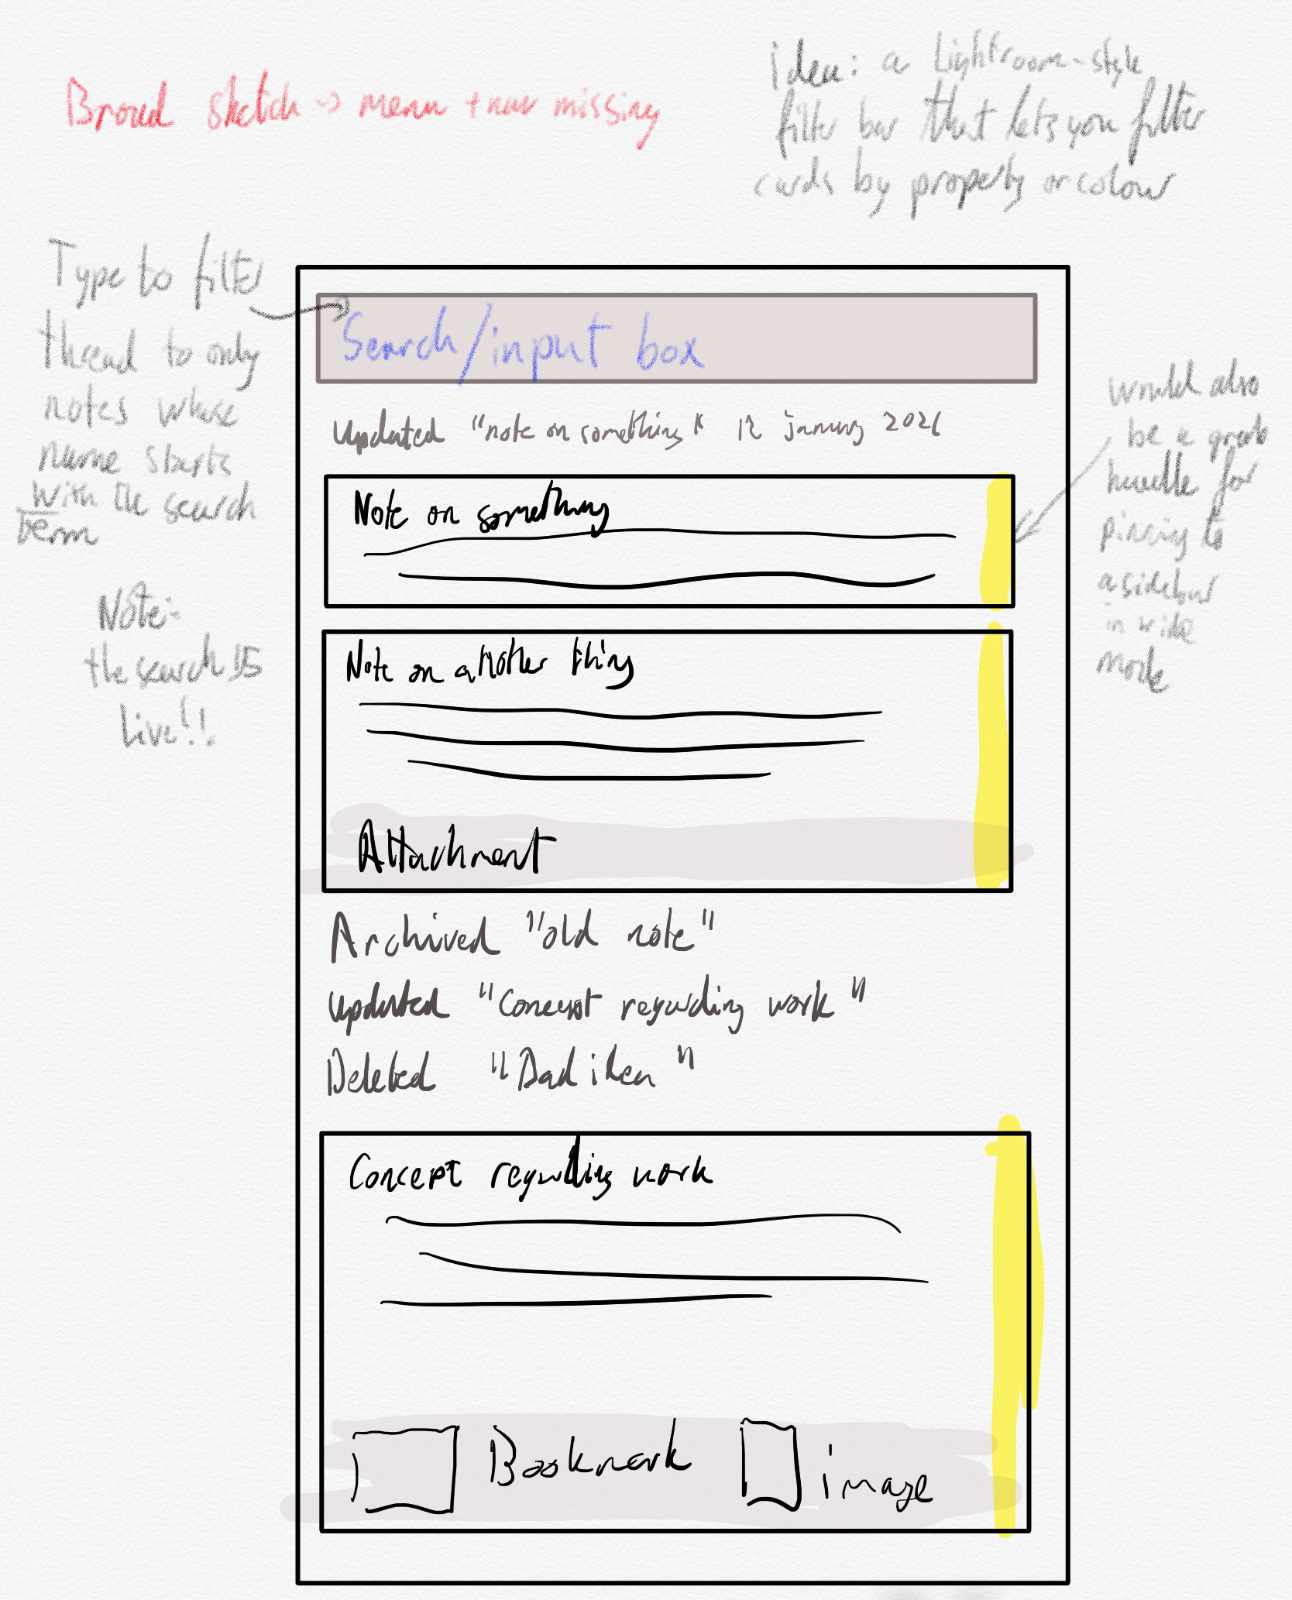 Broad sketch -> menu + nav missing
idea: a Lightroom-style
filter bar that lets you filter
cards by property or colour
Type to filter
thread to only
notes whose
name starts
with the search
term
Note:-
the search is
live!!
Search/input box
Updated "note on something" 12 january 2026
Note on something
would also
be a grab
handle for
pinning to
a sidebar
in wide
mode
Note on another thing
Attachment
Archived "old note"
Updated "Concept regarding work"
Deleted "Bad idea"
Concept regarding work
Bookmark
image